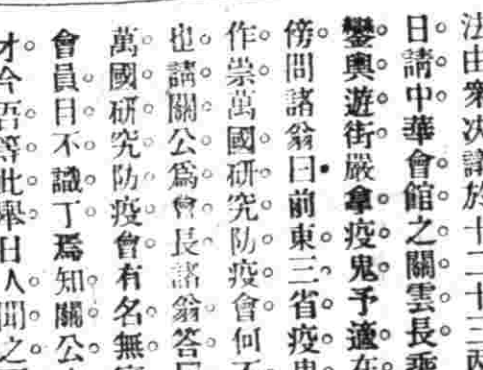 法由衆决議於十二十三兩
日。請中華會館之關雲長乘
鑾輿遊街。嚴拿疫鬼。予適在
傍。問諸翁曰。前東三省疫鬼
作祟。萬國研究防疫會何不
也。請關公爲會長。諸翁答曰
萬國研究防疫會有名無實
會員目不識丁。焉知關公
才。今吾等此舉。日人聞之。